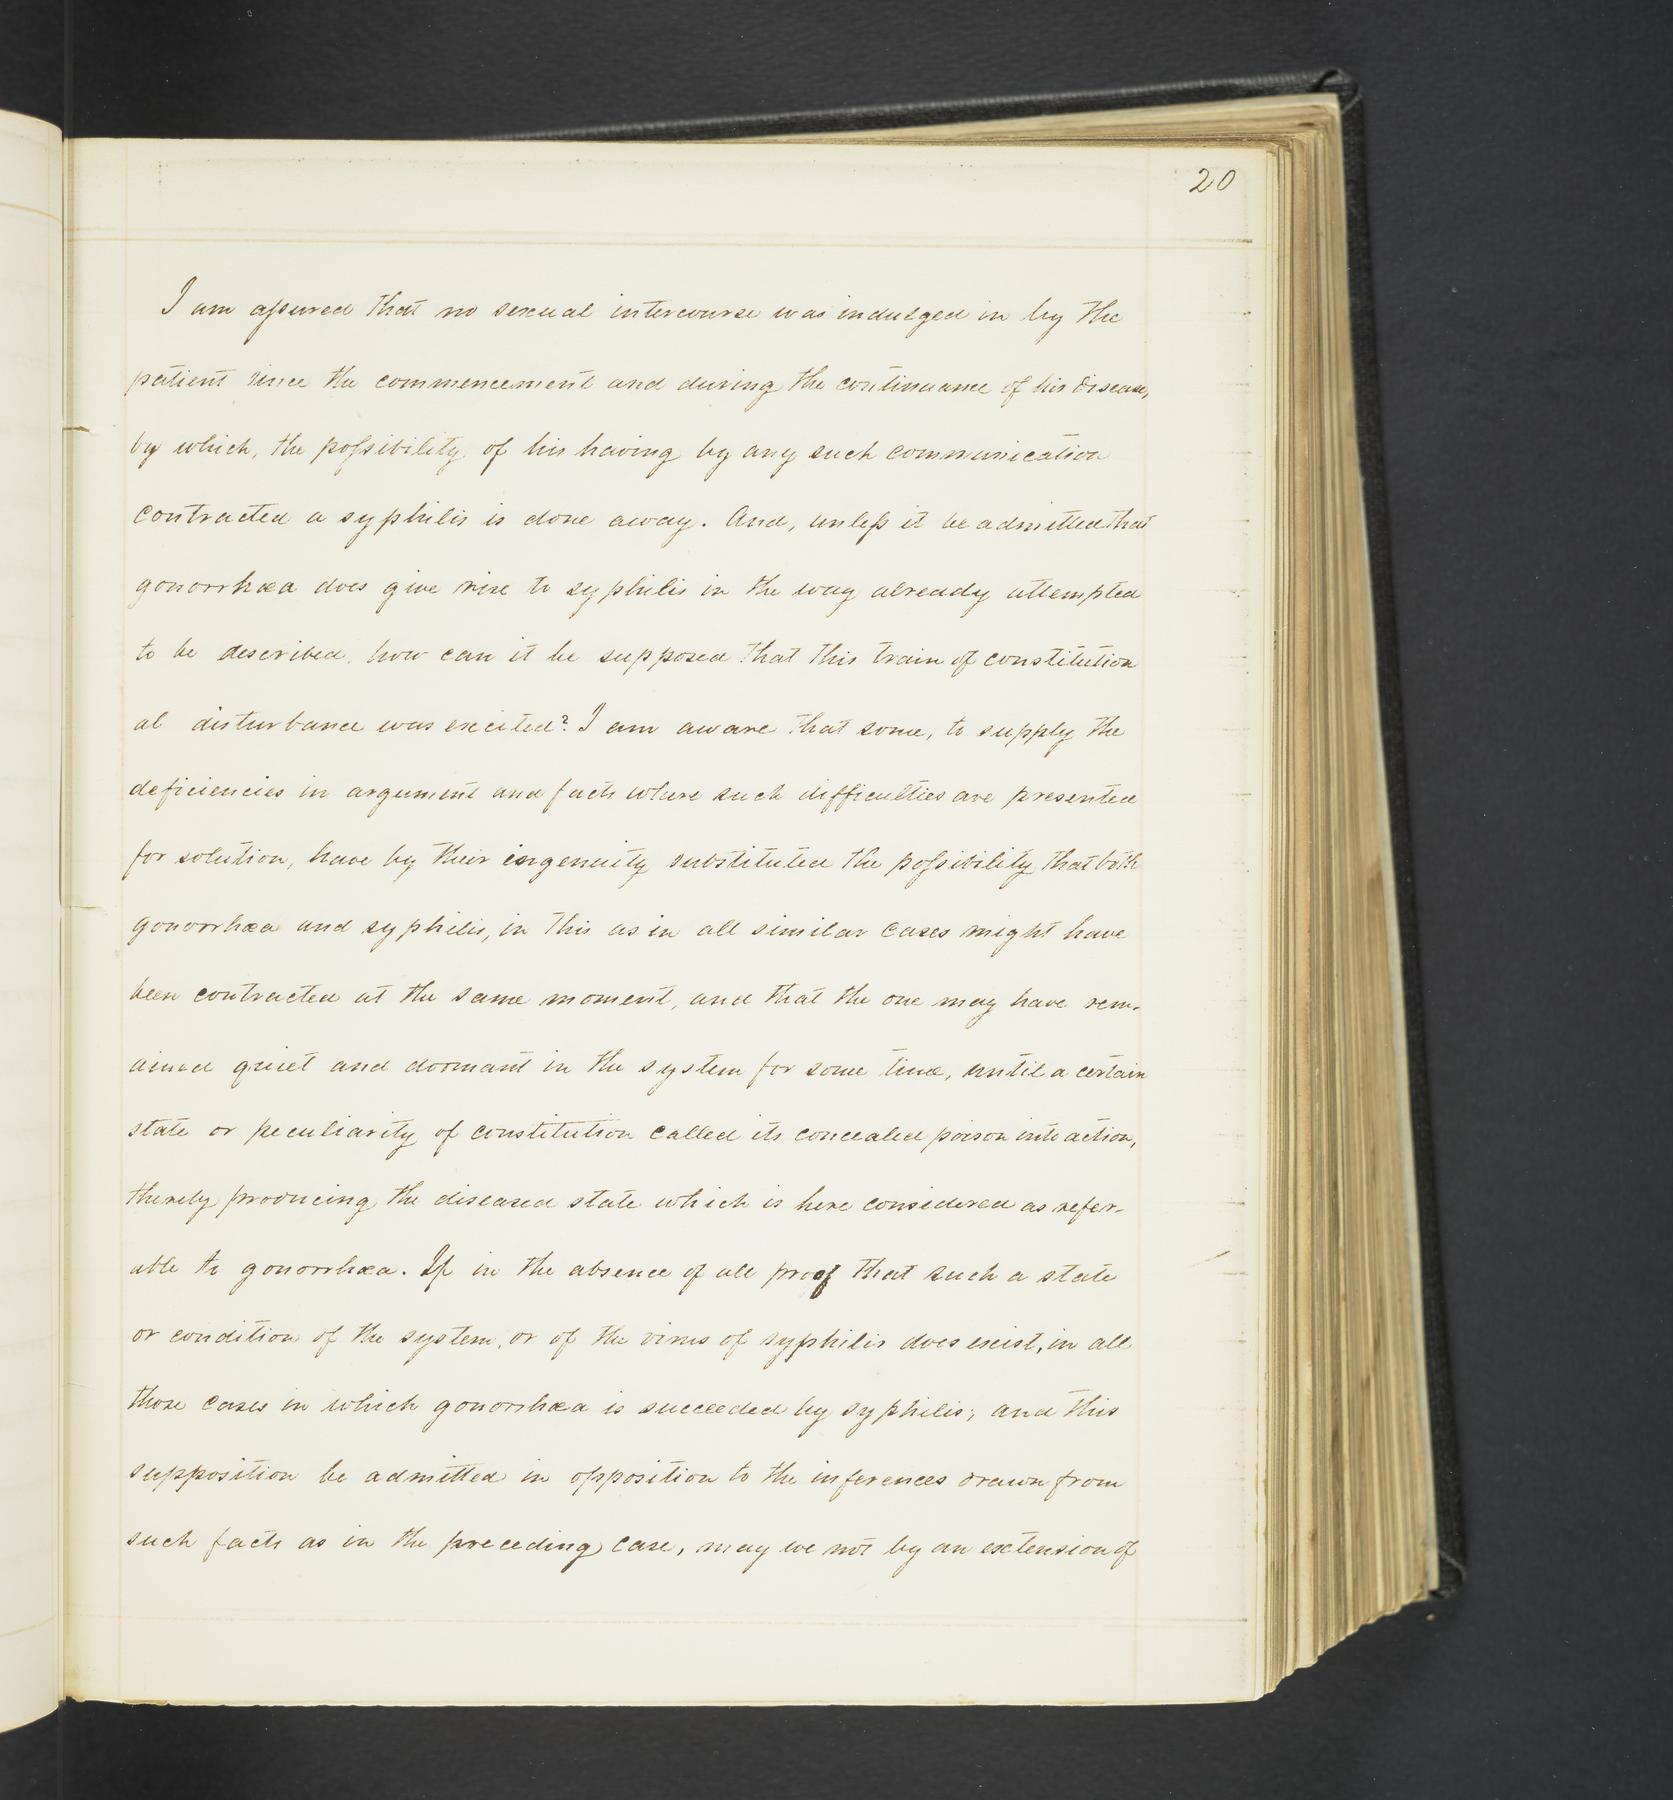 20
I am assured that no sexual intercourse was indulged in by the
patient since the commencement and during the continuance of his disease,
by which, the possibility of his having by any such communication
contracted a syphilis is done away. And, unless it be admitted that
gonorrhœa does give rise to syphilis in the way already attempted
to be described, how can it be supposed that this train of constitution
al disturbance was excited? I am aware that some, to supply the
deficiencies in argument and facts where such difficulties are presented
for solution, have by their ingenuity substituted the possibility that both
gonorrhœa and syphilis, in this as in all similar cases might have
been contracted at the same moment, and that the one may have rem-
ained quiet and dormant in the system for some time, until a certain
state or peculiarity of constitution called its concealed poison into action,
thereby producing the diseased state which is here considered as refer-
able to gonorrhœa. If in the absence of all proof that such a state
or condition of the system, or of the virus of syphilis does exist, in all
those cases in which gonorrhœa is succeeded by syphilis; and this
supposition be admitted in opposition to the inferences drawn from
such facts as in the preceding case, may we not by an extension of